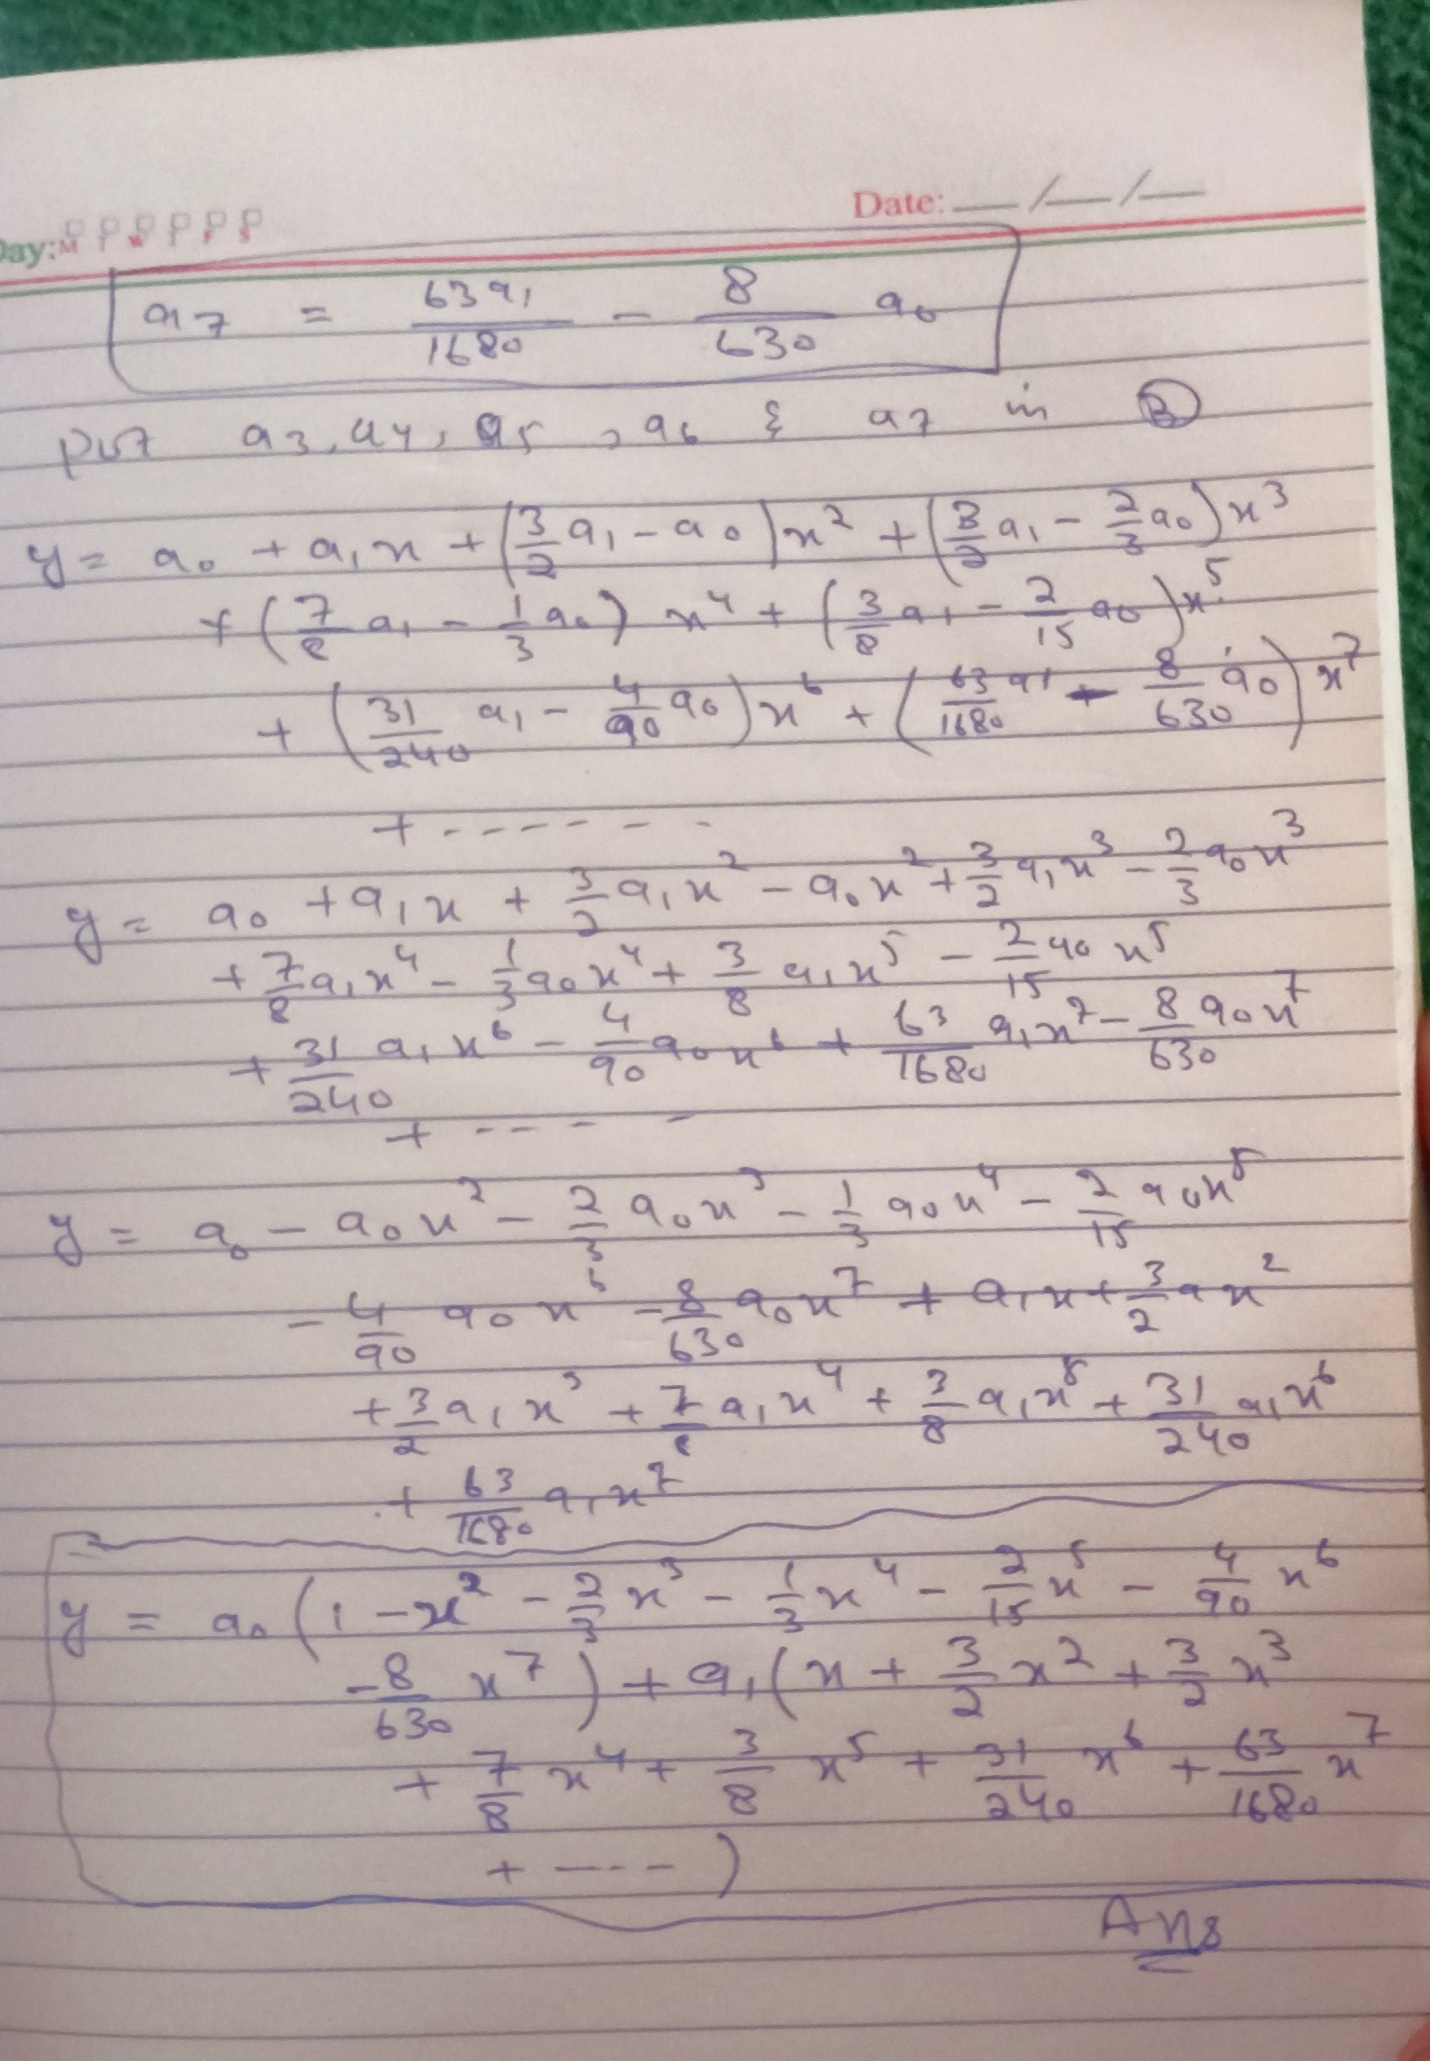 Date: __/__/__
Day: M T W T F S
a7 = 63a1/1680 - 8/630 a0
put a3, a4, a5, a6 & a7 in B
y = a0 + a1x + (3/2 a1 - a0)x² + (3/2 a1 - 2/3 a0)x³
+ (7/8 a1 - 1/3 a0) x⁴ + (3/8 a1 - 2/15 a0)x⁵
+ (31/240 a1 - 4/90 a0)x⁶ + (63/1680 a1 - 8/630 a0)x⁷
+ ------
y = a0 + a1x + 3/2 a1x² - a0x² + 3/2 a1x³ - 2/3 a0x³
+ 7/8 a1x⁴ - 1/3 a0x⁴ + 3/8 a1x⁵ - 2/15 a0x⁵
+ 31/240 a1x⁶ - 4/90 a0x⁶ + 63/1680 a1x⁷ - 8/630 a0x⁷
+ ----
y = a0 - a0x² - 2/3 a0x³ - 1/3 a0x⁴ - 2/15 a0x⁵
- 4/90 a0x⁶ - 8/630 a0x⁷ + a1x + 3/2 ax²
+ 3/2 a1x³ + 7/8 a1x⁴ + 3/8 a1x⁵ + 31/240 a1x⁶
+ 63/1680 a1x⁷
y = a0(1 - x² - 2/3 x³ - 1/3 x⁴ - 2/15 x⁵ - 4/90 x⁶
- 8/630 x⁷) + a1(x + 3/2 x² + 3/2 x³
+ 7/8 x⁴ + 3/8 x⁵ + 31/240 x⁶ + 63/1680 x⁷
+ ----)
Ans